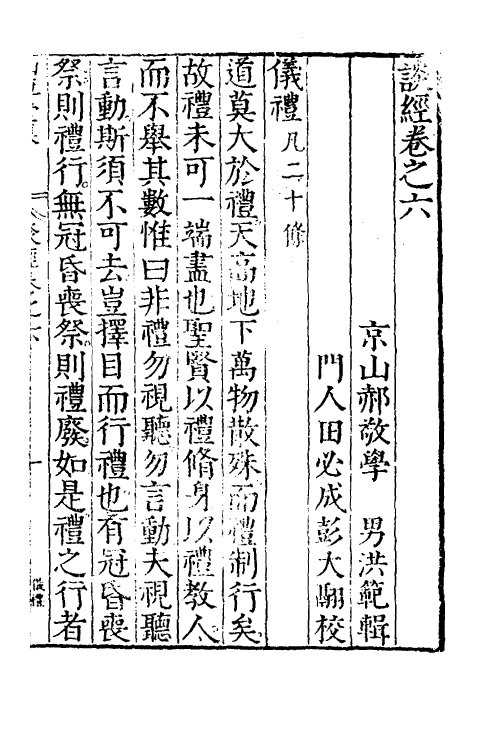 談經卷之六
京山郝敬學　男洪範輯
門人田必成彭大翮校
儀禮凡二十條
道莫大於禮天高地下萬物散殊而禮制行矣
故禮未可一端盡也聖賢以禮脩身以禮教人
而不舉其數惟曰非禮勿視聽勿言動夫視聽
言動斯須不可去豈擇目而行禮也有冠昏喪
祭則禮行無冠昏喪祭則禮廢如是禮之行者
儀禮